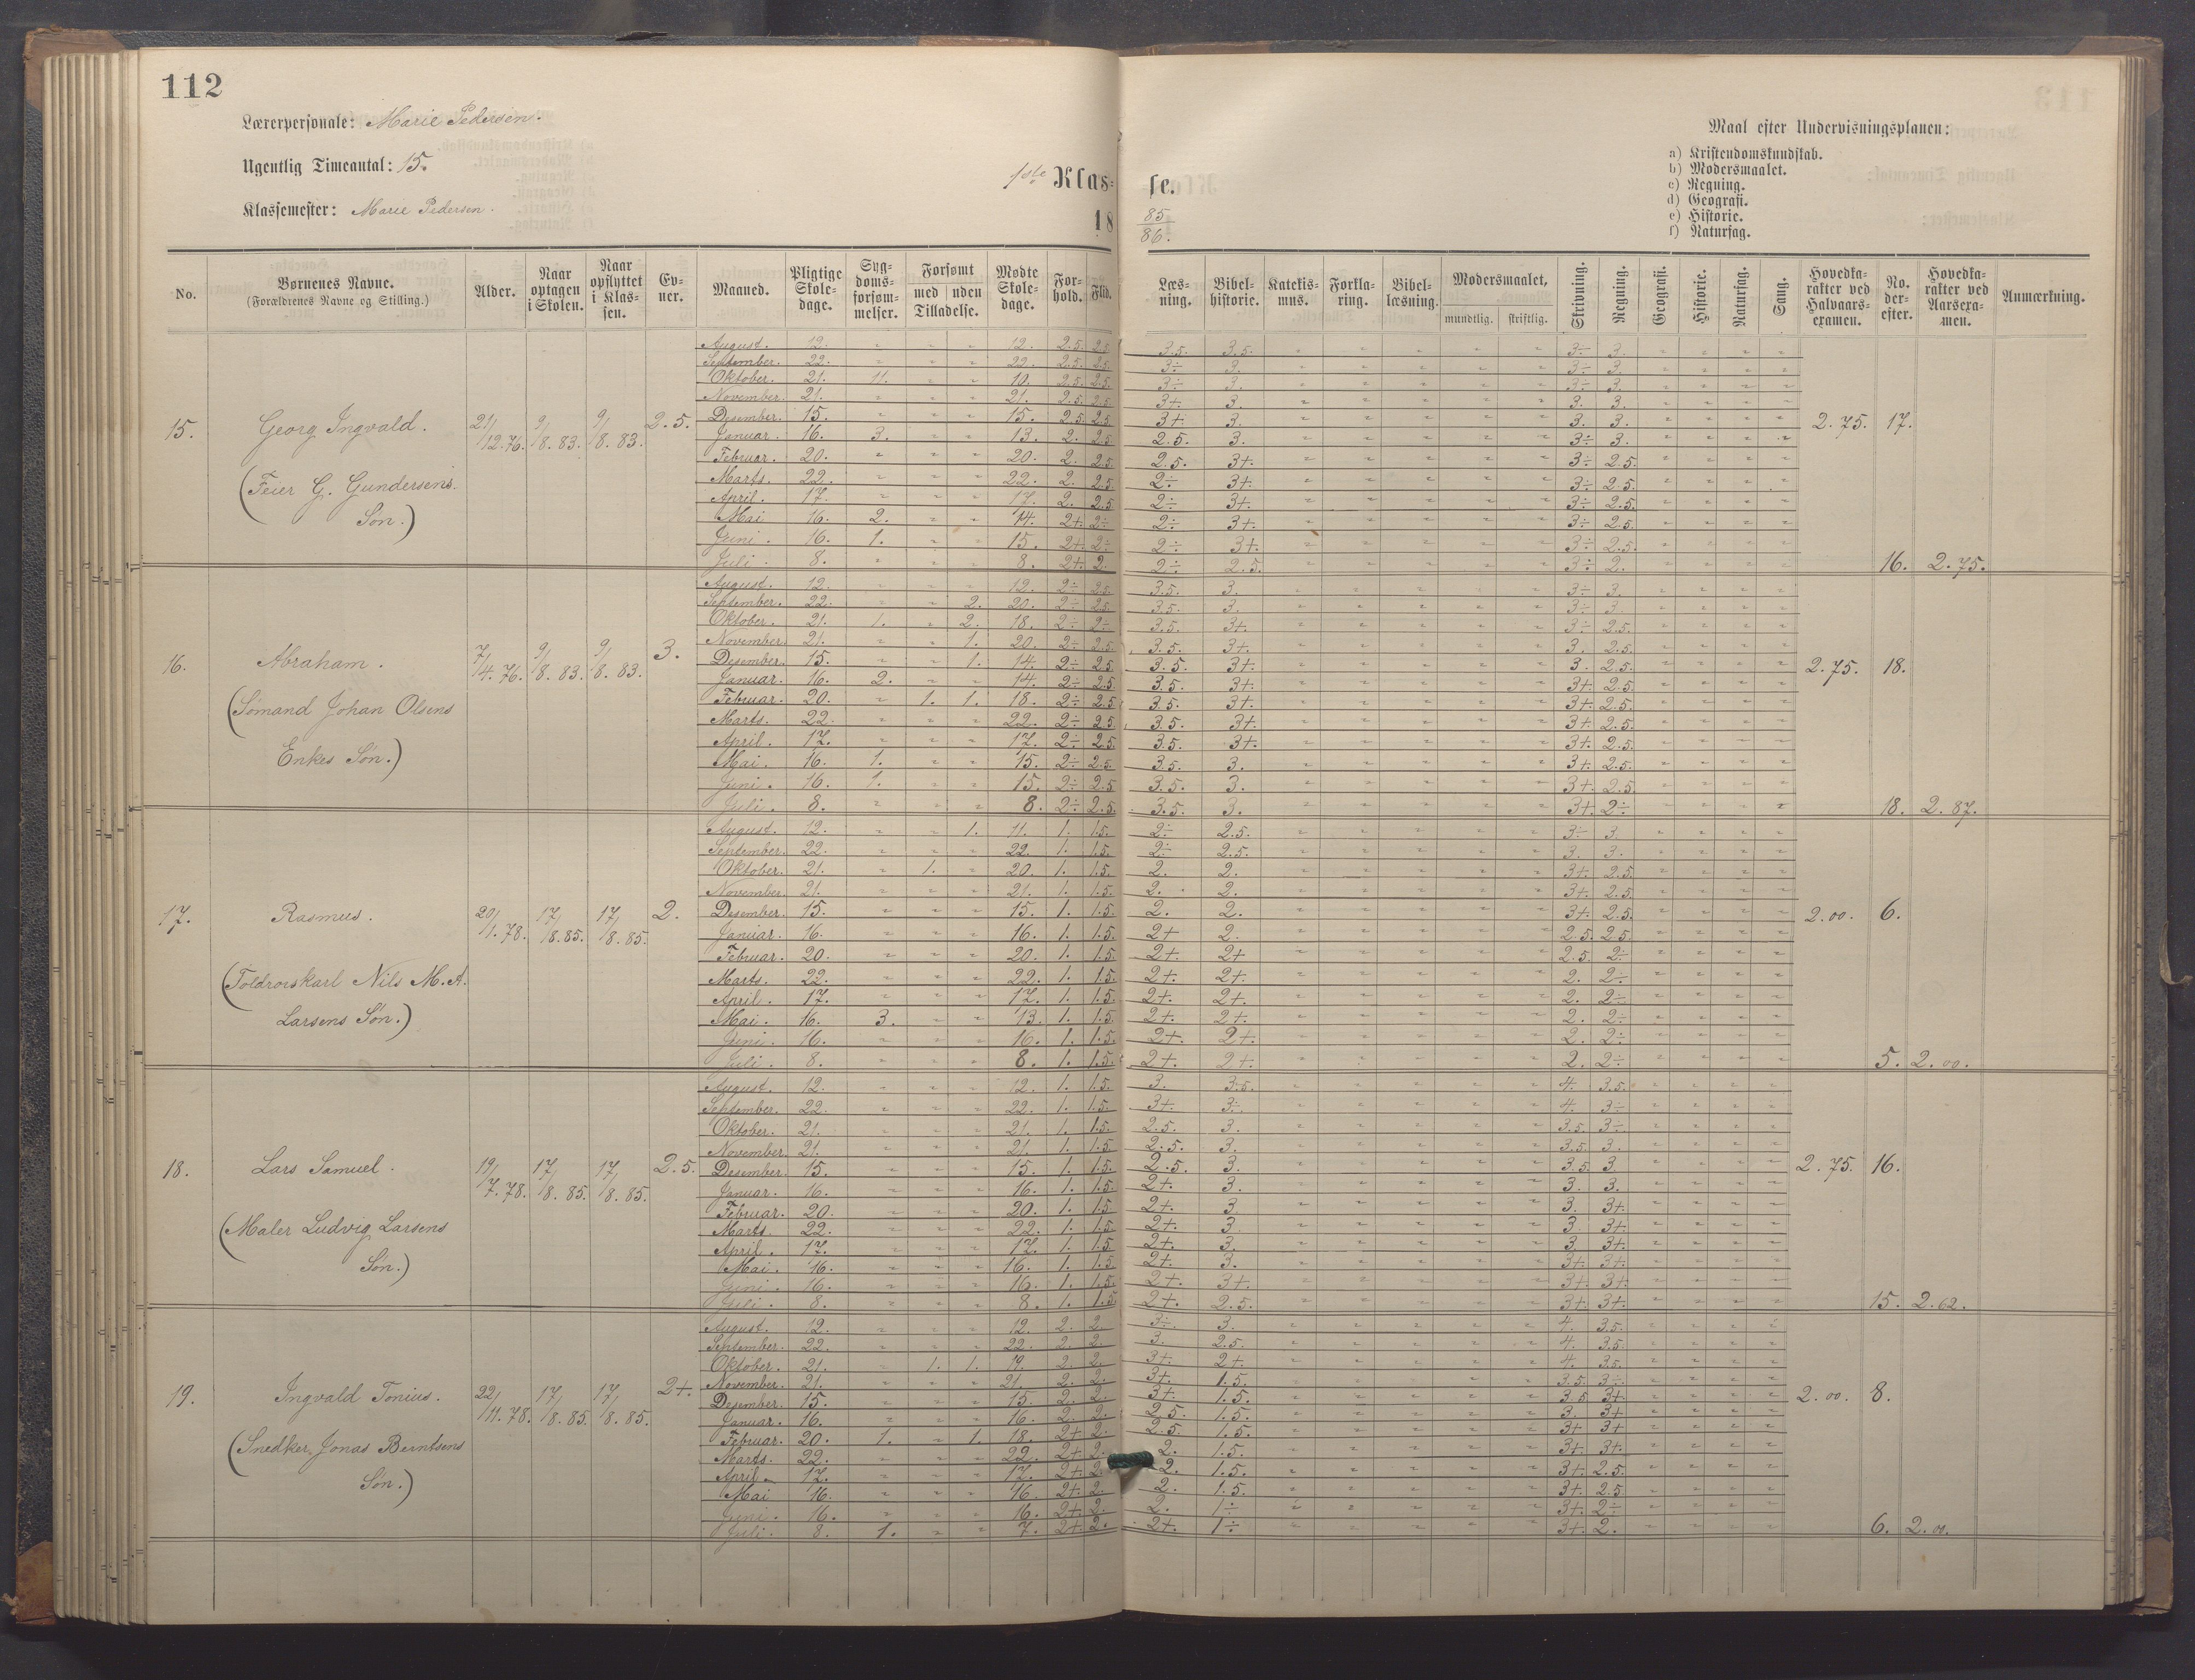 112
Lærerpersonale: Marie Pedersen.
Ugentlig Timeantal: 15.
Klassemester: Marie Pedersen.
1ste Klas-
se.
18
85
86.
Maal efter Undervisningsplanen:
a) Kristendomskundskab.
b) Modersmaalet.
c) Regning.
d) Geografi.
e) Historie.
f) Naturfag.
No. Børnenes Navne. (Forældrenes Navne og Stilling.) Alder. Naar optagen i Skolen. Naar opflyttet i Klas-sen. Ev-ner. Maaned. Pligtige Skole-dage. Syg-doms-forsøm-melser. Forsømt med uden Tilladelse. Mødte Skole-dage. For-hold. Flid. Læs-ning. Bibel-historie. Katekis-mus. Forkla-ring. Bibel-læsning. Modersmaalet, mundtlig. skriftlig. Skrivning. Regning. Geografi. Historie. Naturfag. Sang. Hovedka-rakter ved Halvaars-examen. No. der-efter. Hovedka-rakter ved Aarsexa-men. Anmærkning.
August. 12. " " " 12. 2.5. 2.5. 3.5. 3.5. " " " " " 3÷ 3. " " " "
September. 22. " " " 22. 2.5. 2.5. 3÷ 3. " " " " " 3÷ 3. " " " "
Oktober. 21. 11. " " 10. 2.5. 2.5. 3÷ 3. " " " " " 3÷ 3. " " " "
November. 21. " " " 21. 2.5. 2.5. 3+. 3. " " " " " 3. 3. " " " "
15. Georg Ingvald. 21/12.76. 9/8.83. 9/8.83. 2.5. Desember. 15. " " " 15. 2.5. 2.5. 3+ 3. " " " " " 3. 3. " " " " 2.75. 17.
Januar. 16. 3. " " 13. 2. 2.5 2.5. 3. " " " " " 3÷ 3. " " " "
Februar. 20. " " " 20. 2. 2.5. 2.5. 3+. " " " " " 3÷ 2.5. " " " "
(Feier G. Gundersens Marts. 22. " " " 22. 2. 2.5. 2÷ 3+. " " " " " 3÷ 2.5. " " " "
April. 17. " " " 17. 2. 2.5. 2÷ 3+. " " " " " 3÷ 2.5. " " " "
Søn.) Mai 16. 2. " " 14. 2+ 2÷ 2÷ 3+. " " " " " 3÷ 2.5. " " " "
Juni. 16. 1. " " 15. 2+. 2÷ 2÷ 3+. " " " " " 3÷ 2.5. " " " "
Juli. 8. " " " 8. 2+. 2. 2÷ 2.5. " " " " " 3÷ 2. " " " " 16. 2.75.
August. 12. " " " 12. 2÷ 2.5. 3.5. 3. " " " " " 3÷ 3. " " " "
September. 22. " " 2. 20. 2÷ 2.5. 3.5. 3. " " " " " 3÷ 3. " " " "
Oktober. 21. 1. " 2. 18. 2÷ 2÷ 3.5. 3+. " " " " " 3÷ 2.5. " " " "
November. 21. " " 1. 20. 2÷ 2.5. 3.5. 3+. " " " " " 3. 2.5. " " " "
16. Abraham. 7/4.76. 9/8.83. 9/8.83. 3. Desember. 15. " " 1. 14. 2÷ 2.5 3.5. 3+. " " " " " 3. 2.5. " " " " 2.75. 18.
Januar. 16. 2. " " 14. 2÷ 2.5. 3.5. 3+. " " " " " 3+. 2.5. " " " "
(Sømand Johan Olsens Februar. 20. " 1. 1. 18. 2÷ 2.5 3.5. 3+. " " " " " 3+. 2.5. " " " "
Marts. 22. " " " 22. 2÷ 2.5 3.5. 3+. " " " " " 3+. 2.5. " " " "
April. 17. " " " 17. 2÷ 2.5. 3.5. 3+. " " " " " 3+. 2.5. " " " "
Enkes Søn.) Mai. 16. 1. " " 15. 2÷ 2.5. 3.5. 3. " " " " " 3+. 2.5. " " " "
Juni. 16. 1. " " 15. 2÷ 2.5 3.5. 3. " " " " " 3+. 2.5. " " " "
Juli. 8. " " " 8. 2÷ 2.5. 3.5. 3. " " " " " 3+. 2÷ " " " " 18. 2.87.
August. 12. " " 1. 11. 1. 1.5. 2÷ 2.5. " " " " " 3÷ 3. " " " "
September. 22. " " " 22. 1. 1.5. 2÷ 2.5. " " " " " 3. 3. " " " "
Oktober. 21. " 1. " 20. 1. 1.5. 2. 2. " " " " " 3+. 2.5. " " " "
November. 21. " " " 21. 1. 1.5. 2. 2. " " " " " 3+. 2.5. " " " "
17. Rasmus. 20/1.78. 17/8.85. 17/8.85. 2. Desember. 15. " " " 15. 1. 1.5. 2. 2. " " " " " 3+. 2.5. " " " " 2.00. 6.
Januar. 16. " " " 16. 1. 1.5. 2+ 2. " " " " " 2.5. 2.5. " " " "
Februar. 20. " " " 20. 1. 1.5. 2+ 2+ " " " " " 2.5. 2÷ " " " "
(Toldrorskarl Nils M.A. Marts. 22. " " " 22. 1. 1.5. 2+. 2+. " " " " " 2. 2÷ " " " "
April. 17. " " " 17. 1. 1.5. 2+. 2+. " " " " " 2. 2÷ " " " "
Larsens Søn.) Mai. 16. 3. " " 13. 1. 1.5. 2+. 2+. " " " " " 2. 2÷ " " " "
Juni. 16. " " " 16. 1. 1.5. 2+. 2+. " " " " " 2. 2÷ " " " "
Juli. 8. " " " 8. 1. 1.5. 2+ 2+. " " " " " 2. 2÷ " " " " 5. 2.00.
August. 12. " " " 12. 1. 1.5. 3. 3.5. " " " " " 4. 3.5. " " " "
September. 22. " " " 22. 1. 1.5. 3+. 3÷ " " " " " 4. 3÷ " " " "
Oktober. 21. " " " 21. 1. 1.5. 2.5. 3. " " " " " 3.5. 3÷ " " " "
November. 21. " " " 21. 1. 1.5 2.5. 3. " " " " " 3.5. 3. " " " "
18. Lars Samuel. 19/7.78. 17/8.85. 17/8.85. 2.5. Desember. 15. " " " 15. 1. 1.5. 2.5. 3. " " " " " 3.5. 3. " " " " 2.75. 16.
Januar. 16. " " " 16. 1. 1.5. 2+. 3. " " " " " 3. 3. " " " "
Februar. 20. " " " 20. 1. 1.5 2+. 3. " " " " " 3. 3+. " " " "
(Maler Ludvig Larsens Marts. 22. " " " 22. 1. 1.5. 2+. 3. " " " " " 3. 3+. " " " "
April. 17. " " " 17. 1. 1.5 2+. 3. " " " " " 3. 3+. " " " "
Søn.) Mai. 16. " " " 16. 1. 1.5. 2+. 3. " " " " " 3+. 3+. " " " "
Juni. 16. " " " 16. 1. 1.5. 2+. 3+. " " " " " 3+. 3+. " " " "
Juli. 8. " " " 8. 1. 1.5 2+. 2.5. " " " " " 3+. 3+. " " " " 15. 2.62.
August. 12. " " " 12. 2. 2. 3÷ 3. " " " " " 4. 3.5. " " " "
September. 22. " " " 22. 2. 2. 3. 2.5. " " " " " 4. 3.5. " " " "
Oktober. 21. " 1. 1. 19. 2. 2. 3+. 2+. " " " " " 4. 3.5. " " " "
November. 21. " " " 21. 2. 2. 3+. 1.5. " " " " 3.5. 3÷ " " " "
19. Ingvald Tonius. 22/11.78. 17/8.85. 17/8.85. 2+. Desember. 15. " " " 15. 2. 2. 3+ 1.5. " " " " " 3.5 3+. " " " " 2.00. 8.
Januar. 16. " " " 16. 2. 2. 2.5. 1.5. " " " " " 3. 3+ " " " "
(Snedker Jonas Berntsens Februar. 20. 1. " 1. 18. 2+ 2. 2.5. 1.5. " " " " " 3+ 3+ " " " "
Marts. 22. " " " 22. 2+ 2. 2. 1.5. " " " " " 3+. 3+. " " " "
April. 17. " " " 17. 2+. 2. 2. 1.5. " " " " " 3+. 2.5. " " " "
Søn.) Mai 16. " " " 16. 2+. 2. 2. 1.5. " " " " " 3+. 2.5. " " " "
Juni. 16. " " " 16. 2+. 2. 2. 1÷ " " " " " 3+. 2÷ " " " "
Juli. 8. 1. " " 7. 2+. 2. 2+. 1÷ " " " " " 3+. 2. " " " " 6. 2.00.